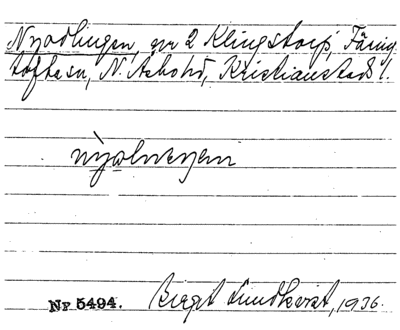 Nyodlingen, nr 2 Klingstorp, Färing
toftasn, N. Åsbohd, Kristianstads l.
Nr 5494. Birgit Lundkvist, 1936.